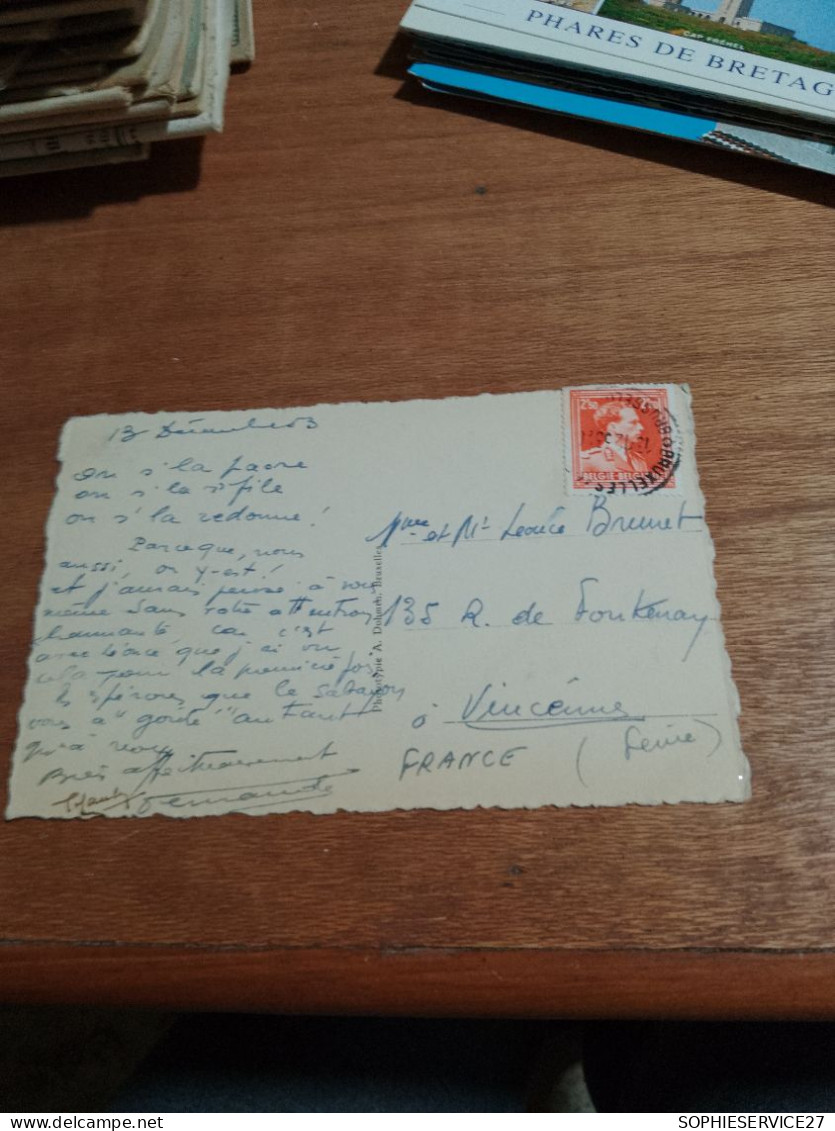 CAP FREHEL
PHARES DE BRETAG
13 Décembre 53
on s'la passe
on s'la r'file
on s'la redonne!
Parceque, nous
aussi, on y-est!
et j'aurais pensé à vous
même sans votre attention
charmante, car c'est
avec Léonce que j'ai vu
cela pour la première fois
J'espérons que le
vous a "gouté" autant
qu'à nous
Bien affectueusement
Fernande
Phototypie A. Dohmen, Bruxelles
2,50
BELGIE-BELGIQUE
BRUXELLES
Mme et Mr Léonce Brunet
135 R. de Fontenay
à Vincennes
(Seine)
FRANCE
SOPHIESERVICE27